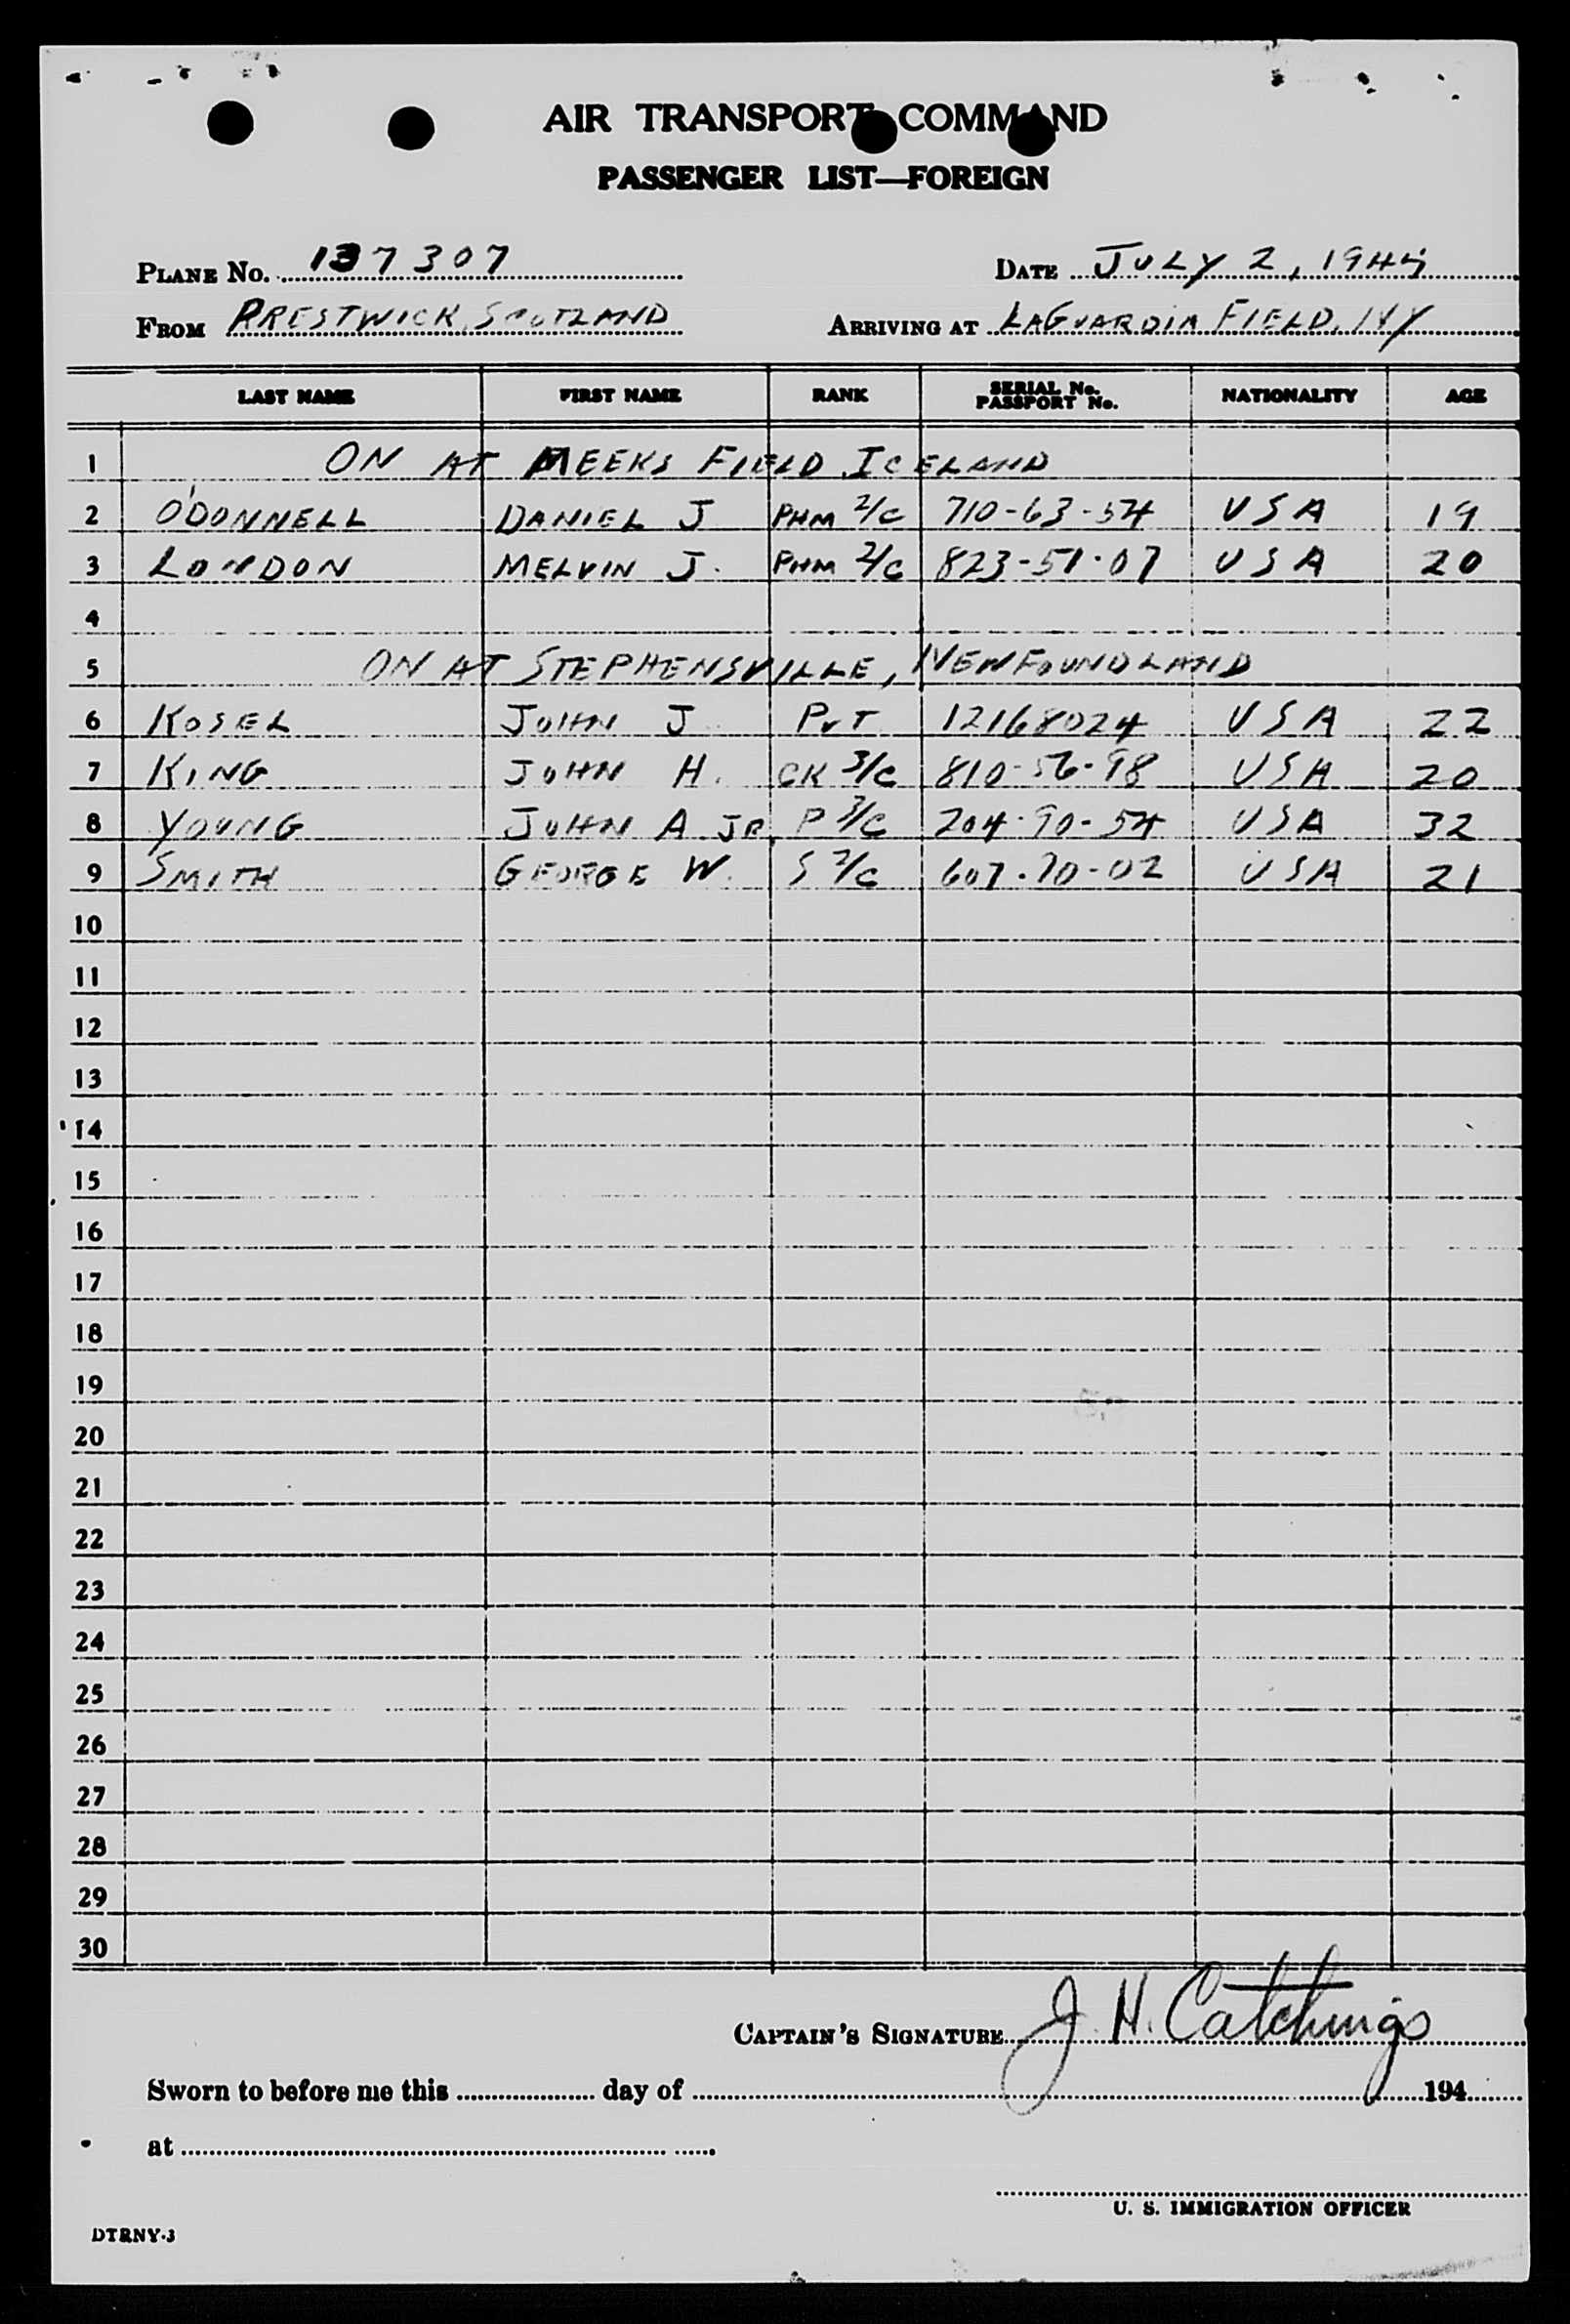 AIR TRANSPORT COMMAND
PASSENGER LIST—FOREIGN
PLANE No. 137307 DATE JULY 2, 1945
FROM PRESTWICK, SCOTLAND ARRIVING AT LAGUARDIA FIELD, NY
LAST NAME FIRST NAME RANK SERIAL No. PASSPORT No. NATIONALITY AGE
1 ON AT MEEKS FIELD ICELAND
2 O'DONNELL DANIEL J PHM 2/C 710-63-54 USA 19
3 LONDON MELVIN J. PHM 2/C 823-51-07 USA 20
4
5 ON AT STEPHENSVILLE, NEWFOUNDLAND
6 KOSEL JOHN J PVT 12168024 USA 22
7 KING JOHN H. CK 3/C 810-56-98 USA 20
8 YOUNG JOHN A JR P 3/C 204-90-54 USA 32
9 SMITH GEORGE W. S 2/C 607-70-02 USA 21
10
11
12
13
14
15
16
17
18
19
20
21
22
23
24
25
26
27
28
29
30
CAPTAIN'S SIGNATURE J. H. Catchings
Sworn to before me this day of 194
at
U. S. IMMIGRATION OFFICER
DTRNY-3